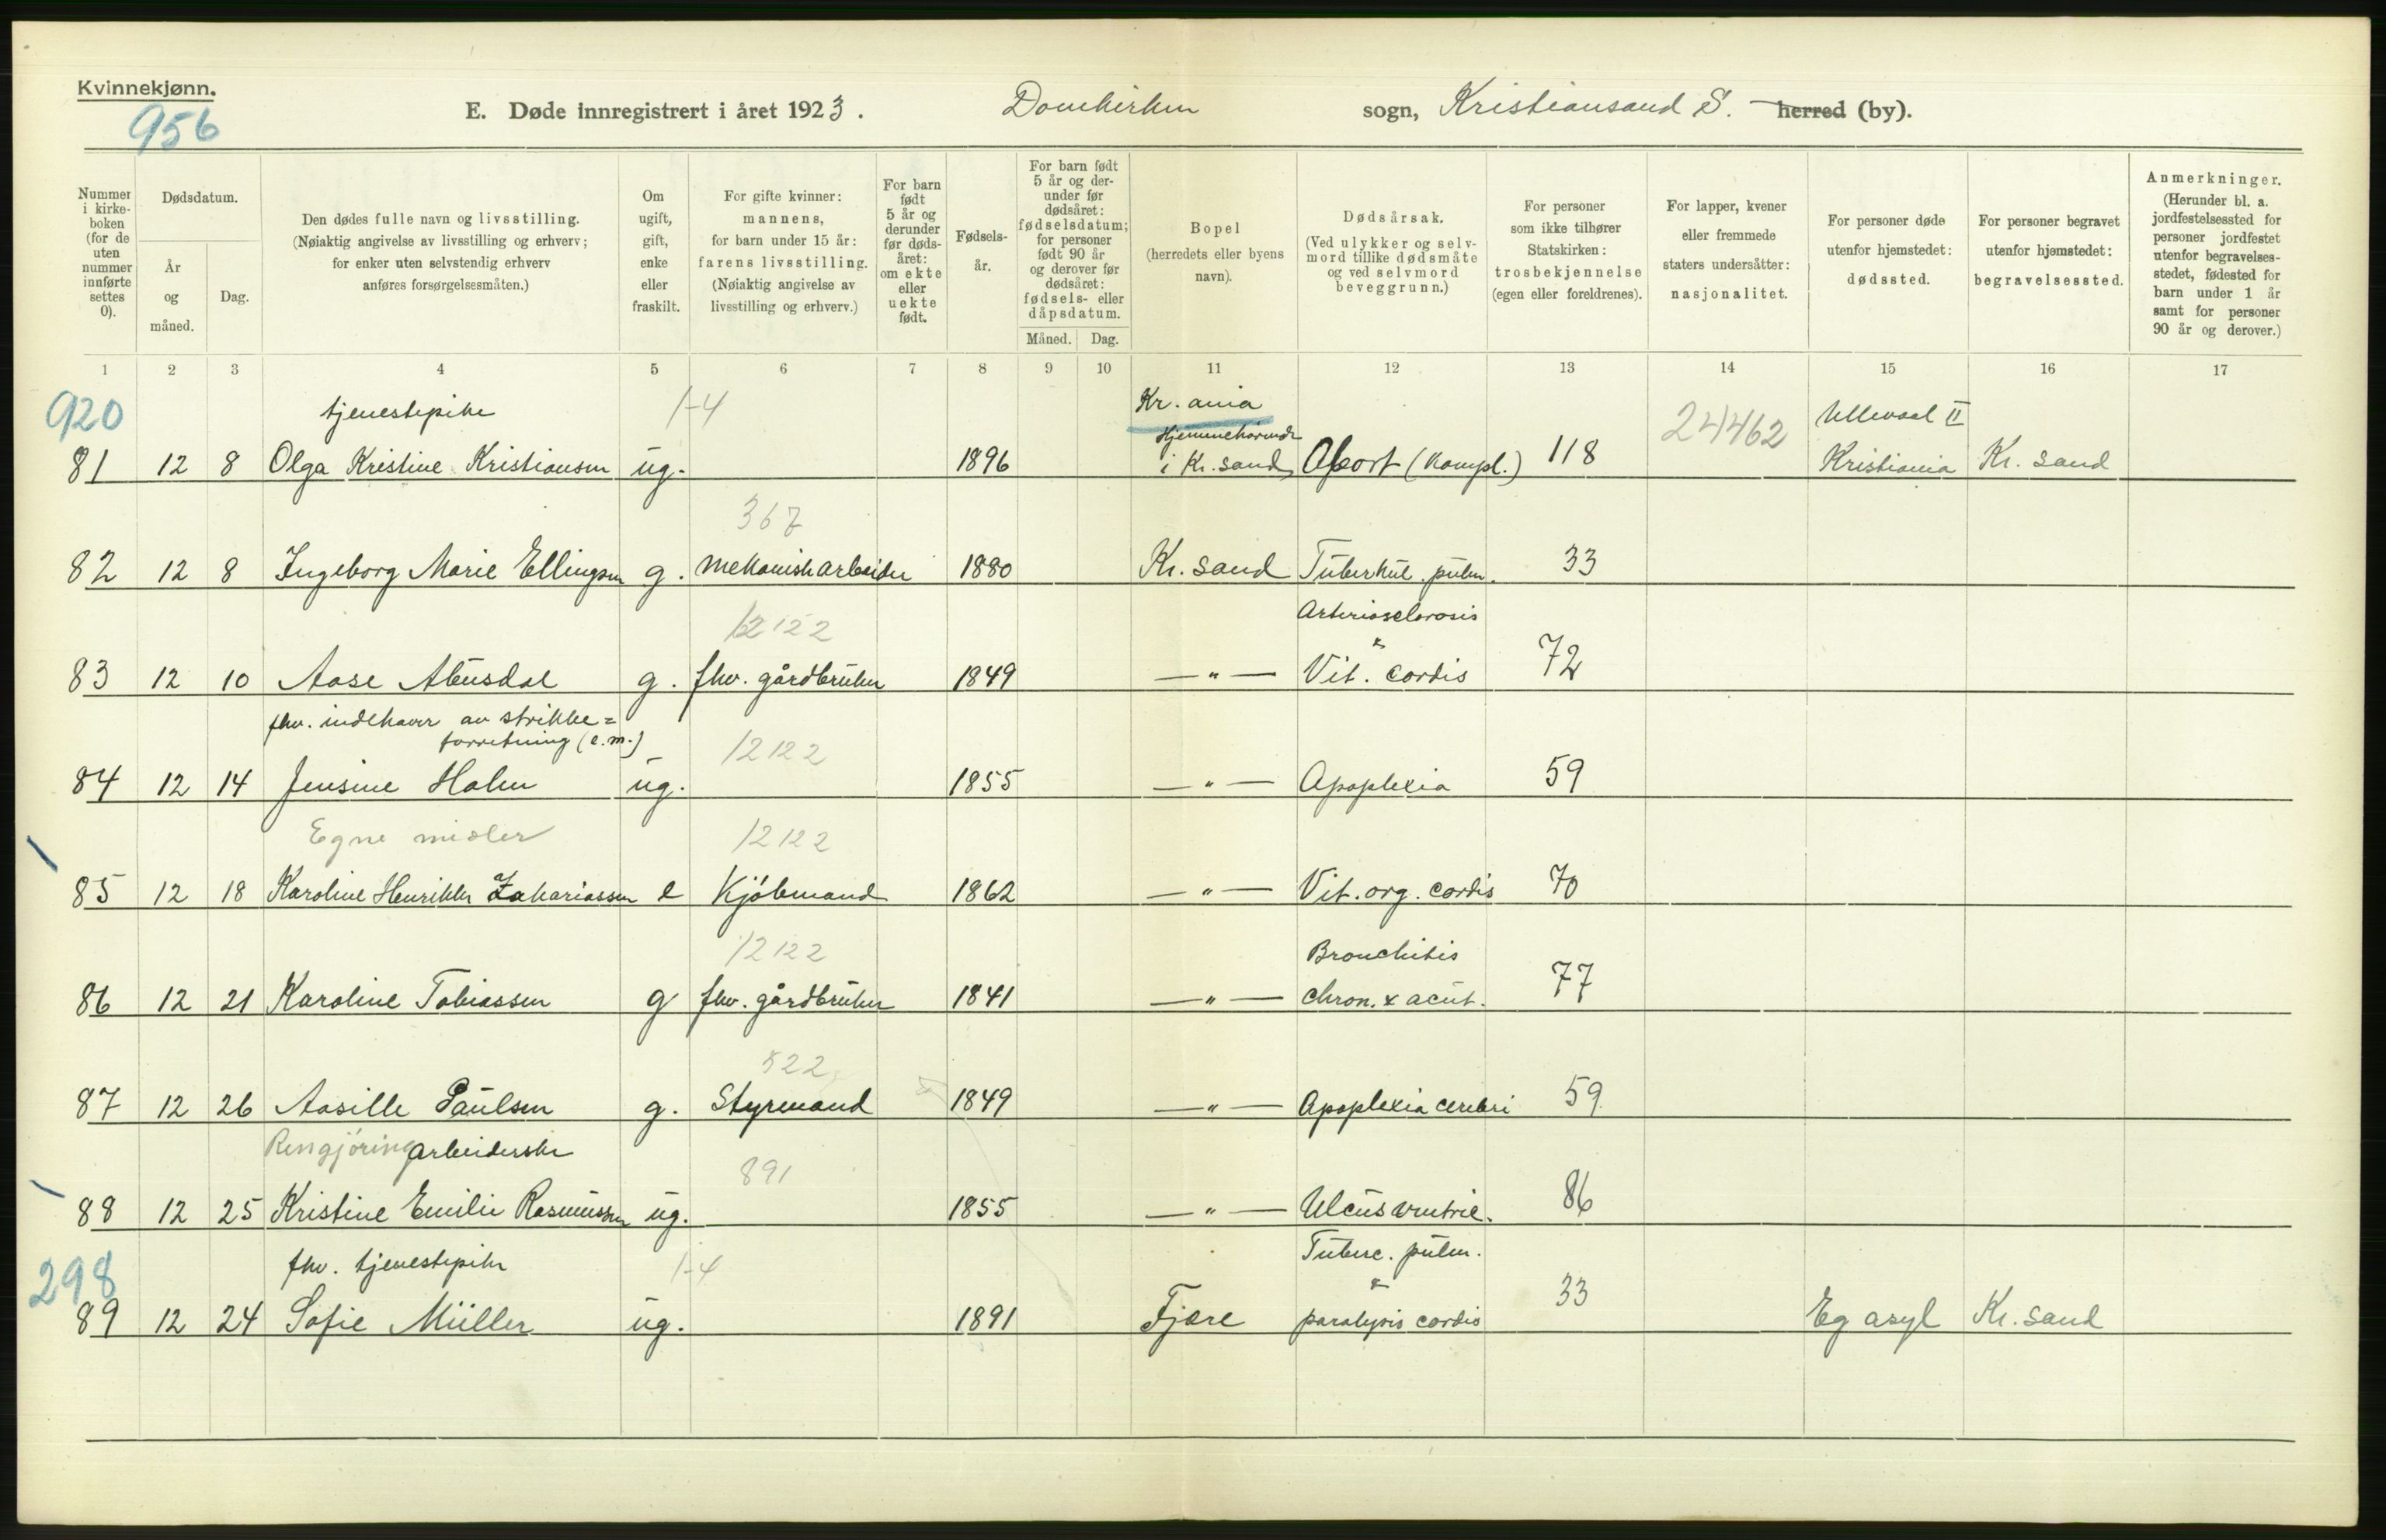 Kvinnekjønn.
956
E. Døde innregistrert i året 1923. Domkirken sogn, Kristiansand S. herred (by).
Nummer i kirkeboken (for de uten nummer innførte settes 0).
Dødsdatum.
År og måned.
Dag.
Den dødes fulle navn og livsstilling. (Nøiaktig angivelse av livsstilling og erhverv; for enker uten selvstendig erhverv anføres forsørgelsesmåten.)
Om ugift, gift, enke eller fraskilt.
For gifte kvinner: mannens, for barn under 15 år: farens livsstilling. (Nøiaktig angivelse av livsstilling og erhverv.)
For barn født 5 år og derunder før dødsåret: om ekte eller uekte født.
Fødselsår.
For barn født 5 år og derunder før dødsåret: fødselsdatum; for personer født 90 år og derover før dødsåret: fødsels- eller dåpsdatum.
Måned. Dag.
Bopel (herredets eller byens navn).
Dødsårsak. (Ved ulykker og selvmord tillike dødsmåte og ved selvmord beveggrunn.)
For personer som ikke tilhører Statskirken: trosbekjennelse (egen eller foreldrenes).
For lapper, kvener eller fremmede staters undersåtter: nasjonalitet.
For personer døde utenfor hjemstedet: dødssted.
For personer begravet utenfor hjemstedet: begravelsessted.
Anmerkninger. (Herunder bl. a. jordfestelsessted for personer jordfestet utenfor begravelsesstedet, fødested for barn under 1 år samt for personer 90 år og derover.)
1 2 3 4 5 6 7 8 9 10 11 12 13 14 15 16 17
920 tjenestepike 1-4 Kr. ania 24462 Ullevaal II
Hjemmehørende
81 12 8 Olga Kristine Kristiansen ug. 1896 i Kr. sand, Abort (kompl.) 118 Kristiania Kr. sand
367
82 12 8 Ingeborg Marie Ellingsen g. mekanisk arbeider 1880 Kr. sand Tuberkul. pulm. 33
12122 Arteriosclerosis
&
83 12 10 Aase Abusdal g. fhv. gårdbruker 1849 — " — Vit. cordis 72
fhv. indehaver av strikke=
forretning (e.m.) 12122
84 12 14 Jensine Holm ug. 1855 — " — Apoplexia 59
Egne midler 12122
85 12 18 Karoline Henrikke Zakariassen e Kjøbmand 1862 — " — Vit. org. cordis 70
12122 Bronchitis
86 12 21 Karoline Tobiassen g fhv. gårdbruker 1841 — " — chron. & acut. 77
522
87 12 26 Aasille Paulsen g. Styrmand 1849 — " — Apoplexia cerebri 59
Rengjöringarbeiderske 891
88 12 25 Kristine Emilie Rasmussen ug. 1855 — " — Ulcus ventric. 86
298 fhv. tjenestepike 1-4 Tuberc. pulm.
&
89 12 24 Sofie Müller ug. 1891 Fjære paralysis cordis 33 Eg asyl Kr. sand